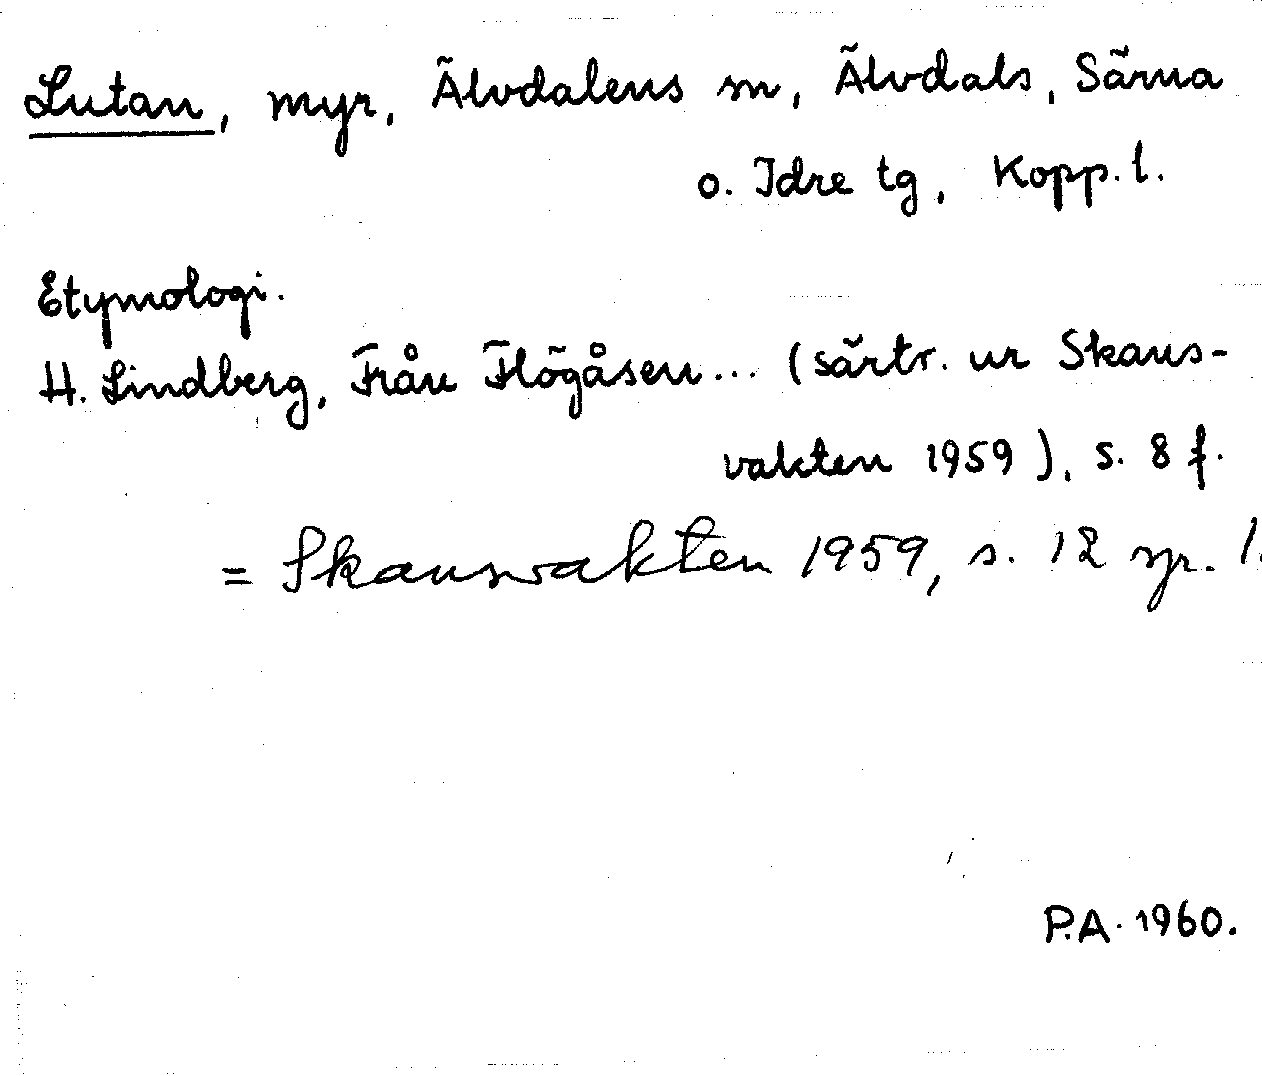 Lutan, myr, Älvdalens sn, Älvdals, Särna
o. Idre tg, Kopp. l.
Etymologi.
H. Lindberg, Från Flögåsen... (särtr. ur Skans-
vakten 1959), s. 8 f.
= Skansvakten 1959, s. 12 sp. 1.
P.A. 1960.